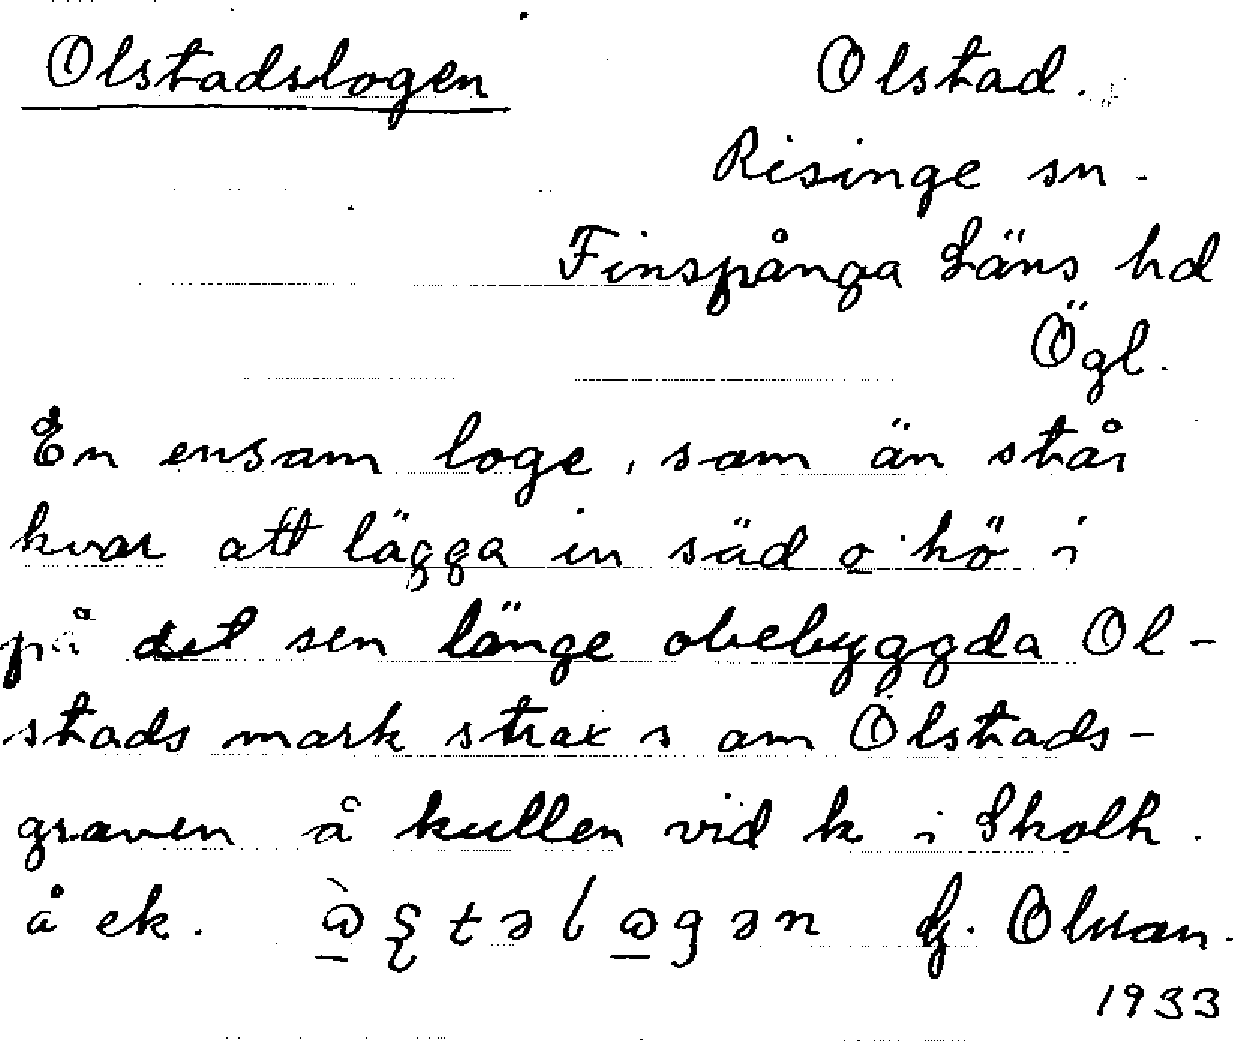 Olstadslogen Olstad.
Risinge sn.
Finspånga Läns hd
Ögl.
En ensam loge, som än står
kvar att lägga in säd o. hö i
på det sen länge obebyggda Ol-
stads mark strax s om Olstads-
graven å kullen vid k i Skolh.
å ek. Olsson.
1933